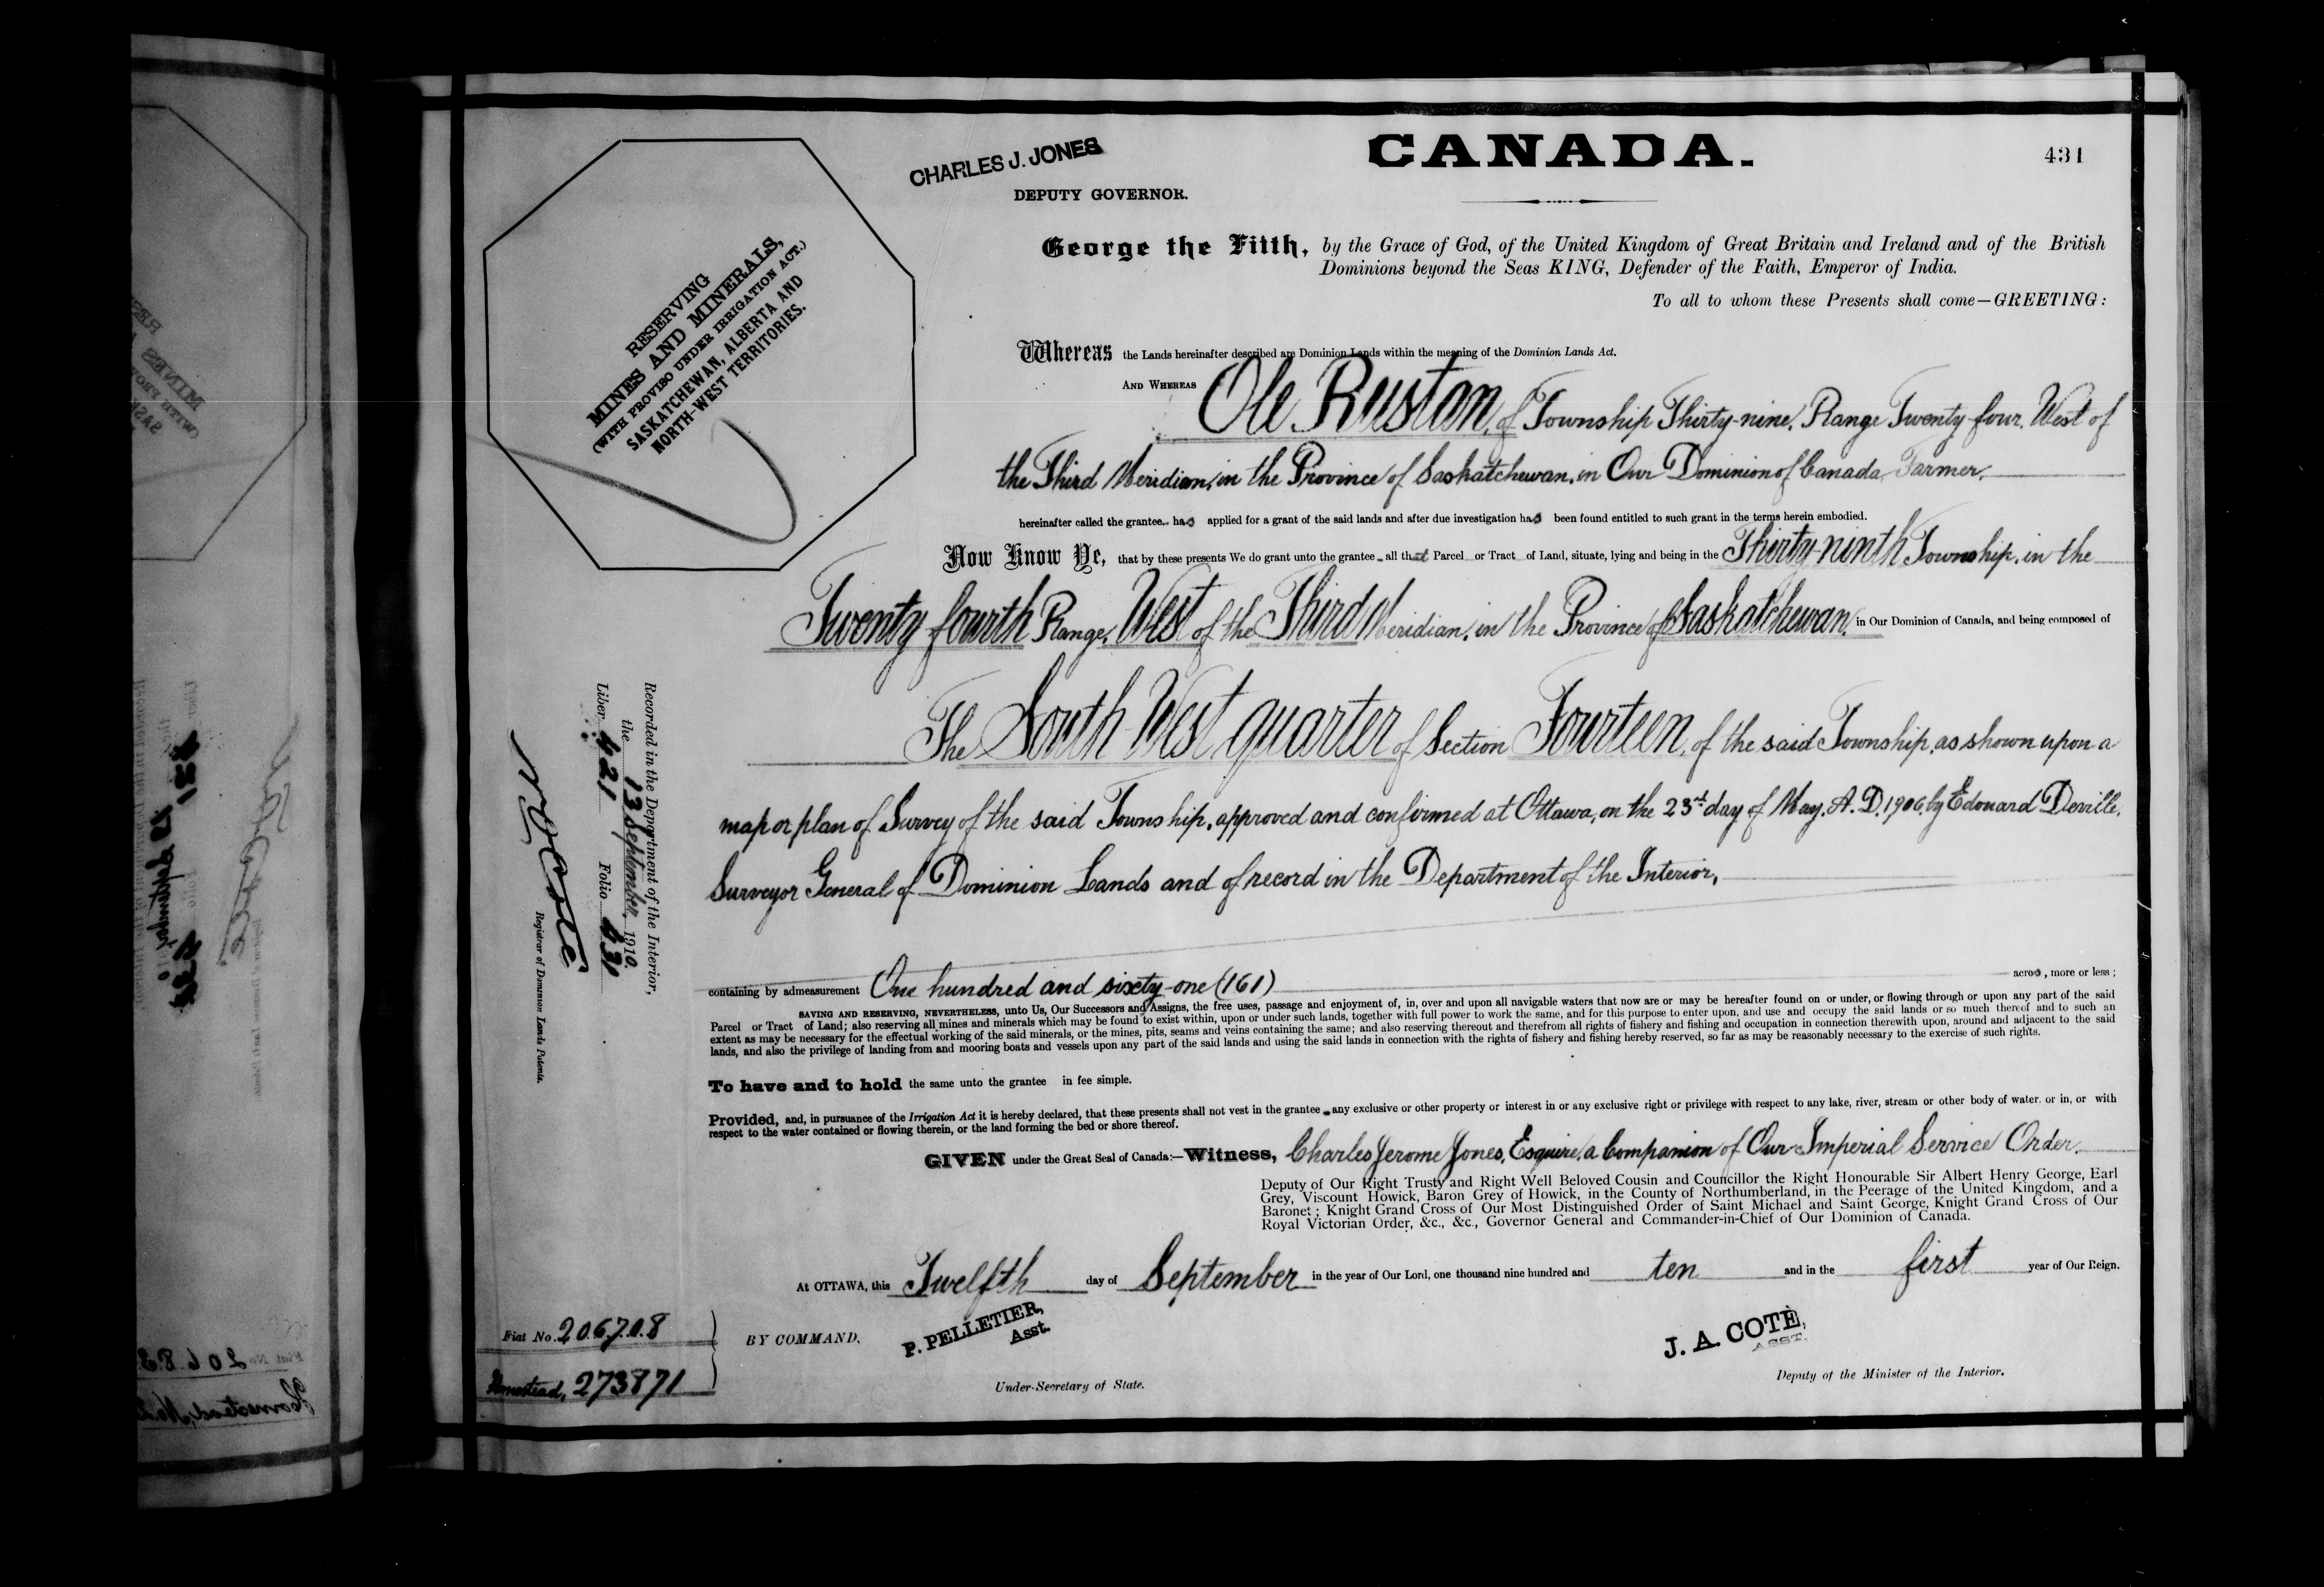 CANADA.
431
CHARLES J. JONES
DEPUTY GOVERNOR.
RESERVING
MINES AND MINERALS,
(WITH PROVISO UNDER IRRIGATION ACT.)
SASKATCHEWAN, ALBERTA AND
NORTH-WEST TERRITORIES.
George the Fifth, by the Grace of God, of the United Kingdom of Great Britain and Ireland and of the British
Dominions beyond the Seas KING, Defender of the Faith, Emperor of India.
To all to whom these Presents shall come—GREETING:
Whereas the Lands hereinafter described are Dominion Lands within the meaning of the Dominion Lands Act.
AND WHEREAS Ole Rustan, of Township Thirty-nine, Range Twenty four, West of
the Third Meridian, in the Province of Saskatchewan, in Our Dominion of Canada, Farmer,
hereinafter called the grantee has applied for a grant of the said lands and after due investigation has been found entitled to such grant in the terms herein embodied.
Now Know Ye, that by these presents We do grant unto the grantee all that Parcel or Tract of Land, situate, lying and being in the Thirty-ninth Township, in the
Twenty fourth Range, West of the Third Meridian, in the Province of Saskatchewan, in Our Dominion of Canada, and being composed of
The South West quarter of Section Fourteen, of the said Township, as shown upon a
map or plan of Survey of the said Township, approved and confirmed at Ottawa, on the 23rd day of May, A.D. 1906, by Edouard Deville,
Surveyor General of Dominion Lands and of record in the Department of the Interior,
containing by admeasurement One hundred and sixty-one (161) acres, more or less;
SAVING AND RESERVING, NEVERTHELESS, unto Us, Our Successors and Assigns, the free uses, passage and enjoyment of, in, over and upon all navigable waters that now are or may be hereafter found on or under, or flowing through or upon any part of the said
Parcel or Tract of Land; also reserving all mines and minerals which may be found to exist within, upon or under such lands, together with full power to work the same, and for this purpose to enter upon, and use and occupy the said lands or so much thereof and to such an
extent as may be necessary for the effectual working of the said minerals, or the mines, pits, seams and veins containing the same; and also reserving thereout and therefrom all rights of fishery and fishing and occupation in connection therewith upon, around and adjacent to the said
lands, and also the privilege of landing from and mooring boats and vessels upon any part of the said lands and using the said lands in connection with the rights of fishery and fishing hereby reserved, so far as may be reasonably necessary to the exercise of such rights.
To have and to hold the same unto the grantee in fee simple.
Provided, and, in pursuance of the Irrigation Act it is hereby declared, that these presents shall not vest in the grantee any exclusive or other property or interest in or any exclusive right or privilege with respect to any lake, river, stream or other body of water, or in, or with
respect to the water contained or flowing therein, or the land forming the bed or shore thereof.
GIVEN under the Great Seal of Canada:—Witness, Charles Jerome Jones, Esquire, a Companion of Our Imperial Service Order,
Deputy of Our Right Trusty and Right Well Beloved Cousin and Councillor the Right Honourable Sir Albert Henry George, Earl
Grey, Viscount Howick, Baron Grey of Howick, in the County of Northumberland, in the Peerage of the United Kingdom, and a
Baronet; Knight Grand Cross of Our Most Distinguished Order of Saint Michael and Saint George, Knight Grand Cross of Our
Royal Victorian Order, &c., &c., Governor General and Commander-in-Chief of Our Dominion of Canada.
At OTTAWA, this Twelfth day of September in the year of Our Lord, one thousand nine hundred and ten and in the first year of Our Reign.
BY COMMAND,
P. PELLETIER,
Asst.
Under-Secretary of State.
J. A. COTÉ,
ASST.
Deputy of the Minister of the Interior.
Recorded in the Department of the Interior,
the 13 September, 1910.
Liber 421 Folio 431
N O Coté
Registrar of Dominion Lands Patents.
Fiat No. 206708
Homestead, 273871